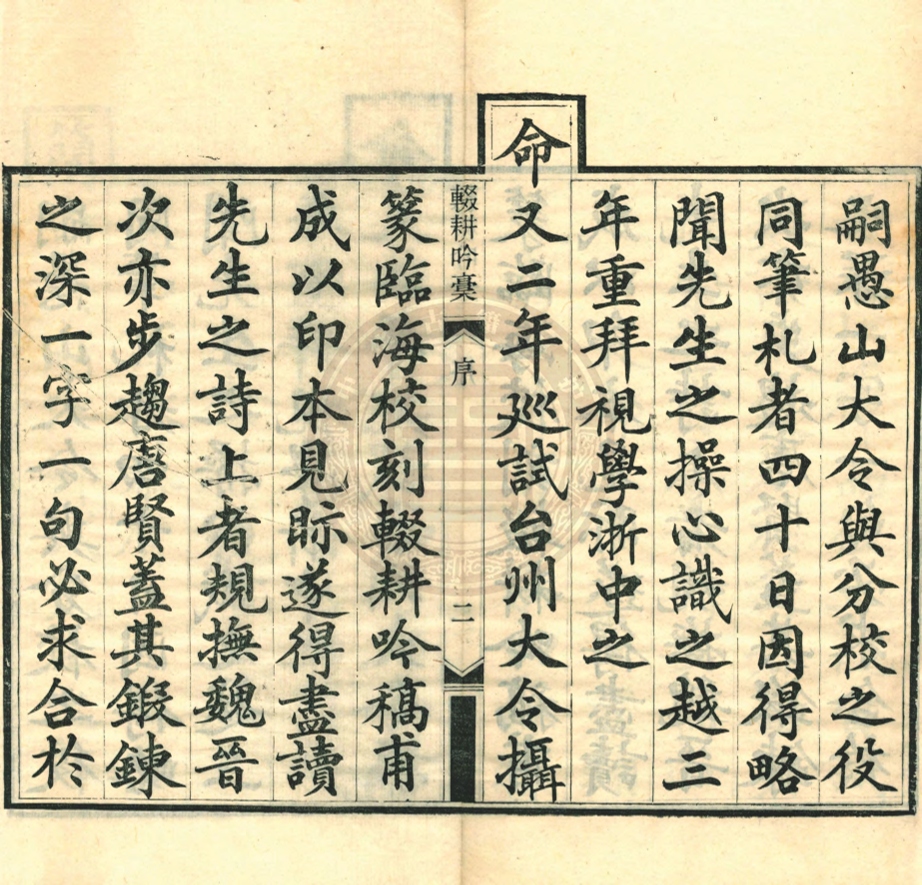 嗣愚山大令與分校之役
同筆札者四十日因得略
聞先生之操心識之越三
年重拜視學浙中之
命又二年廵試台州大令攝
輟耕吟稾 序 二
篆臨海校刻輟耕吟稿甫
成以印本見眎遂得盡讀
先生之詩上者規撫魏晉
次亦步趨唐賢蓋其鍛鍊
之深一字一句必求合於